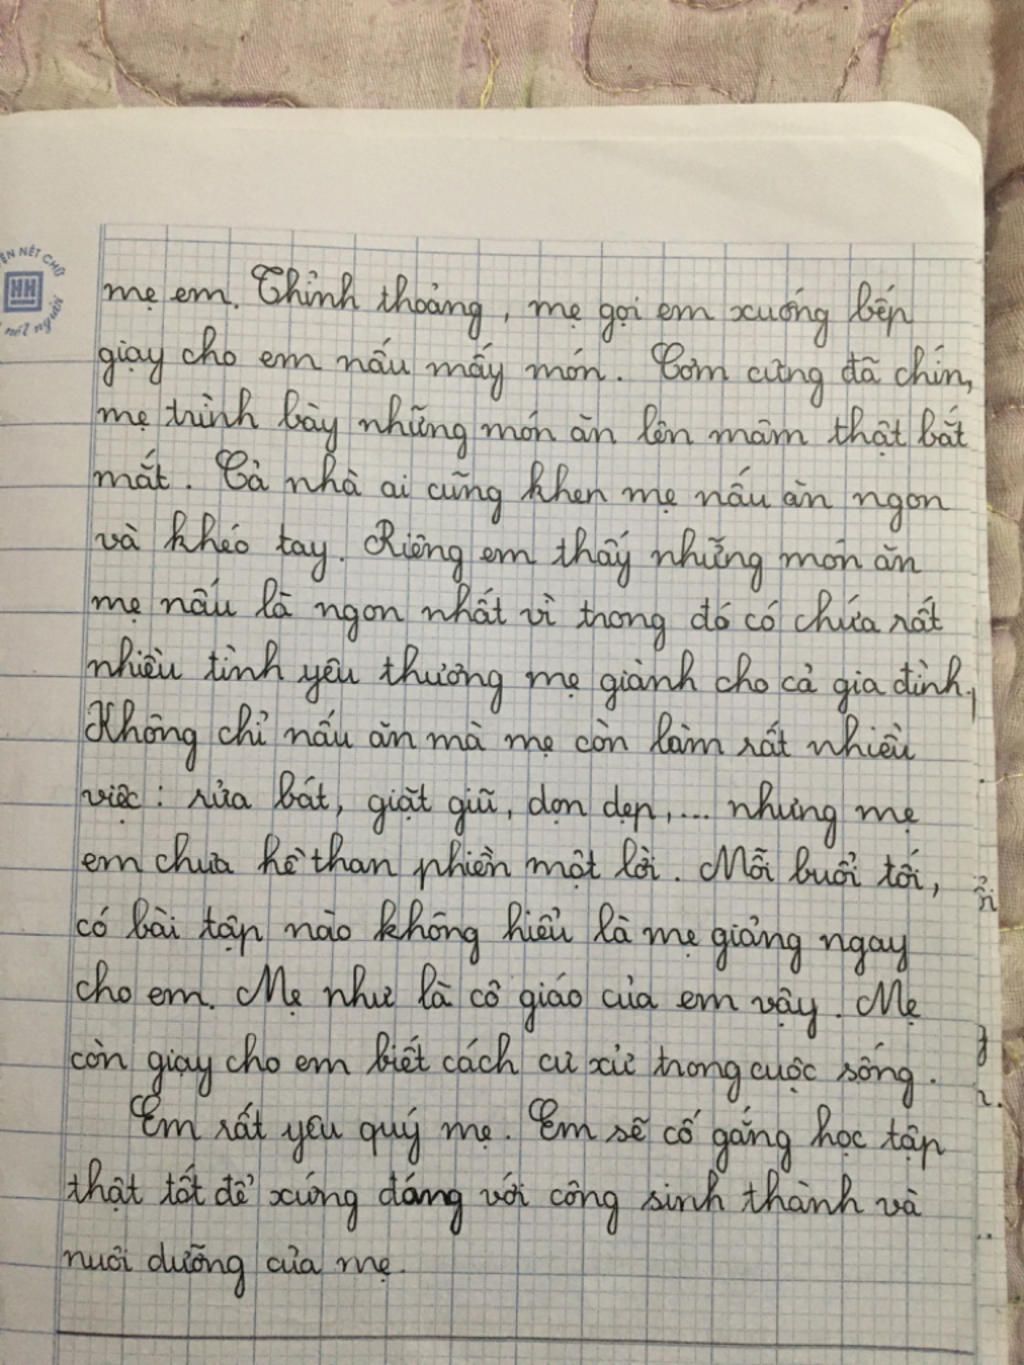 ỆN NÉT CHỮ
HH
nết người
mẹ em. Thỉnh thoảng, mẹ gọi em xuống bếp
giạy cho em nấu mấy món. Cơm cũng đã chín,
mẹ trình bày những món ăn lên mâm thật bắt
mắt. Cả nhà ai cũng khen mẹ nấu ăn ngon
và khéo tay. Riêng em thấy những món ăn
mẹ nấu là ngon nhất vì trong đó có chứa rất
nhiều tình yêu thương mẹ giành cho cả gia đình.
Không chỉ nấu ăn mà mẹ còn làm rất nhiều
việc: rửa bát, giặt giũ, dọn dẹp,... nhưng mẹ
em chưa hề than phiền một lời. Mỗi buổi tối,
có bài tập nào không hiểu là mẹ giảng ngay
cho em. Mẹ như là cô giáo của em vậy. Mẹ
còn giạy cho em biết cách cư xử trong cuộc sống.
Em rất yêu quý mẹ. Em sẽ cố gắng học tập
thật tốt để xứng đáng với công sinh thành và
nuôi dưỡng của mẹ.